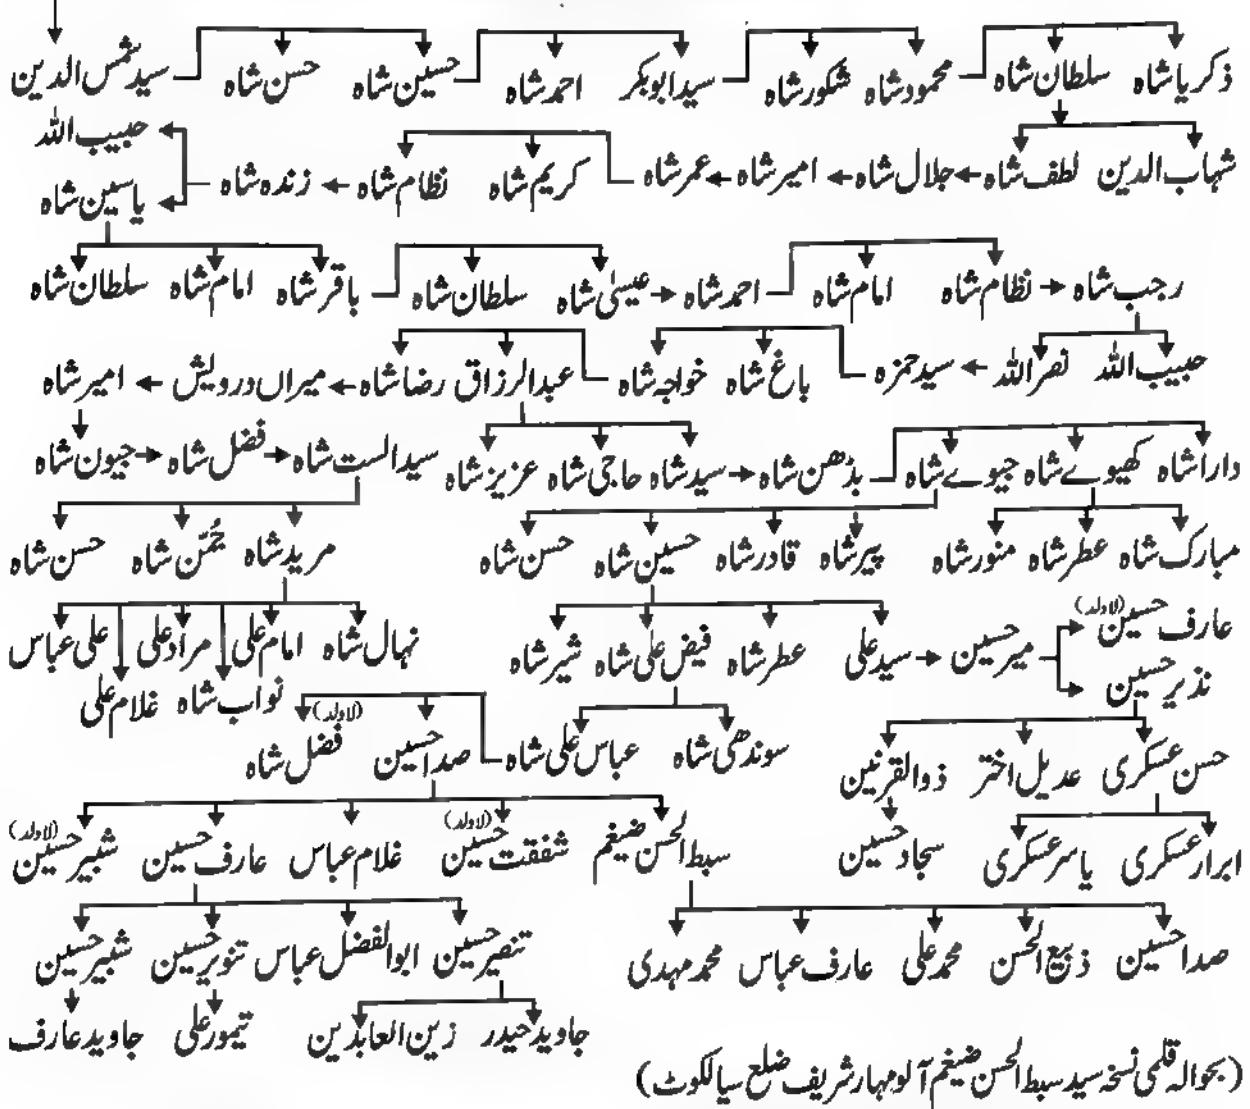 ذکریا شاہ سلطان شاہ محمود شاہ شکور شاہ سید ابوبکر احمد شاہ حسین شاہ حسن شاہ سید شمس الدین
حبیب اللہ
شہاب الدین لطف شاہ جلال شاہ امیر شاہ عمر شاہ کریم شاہ نظام شاہ زندہ شاہ
یاسین شاہ
رجب شاہ نظام شاہ امام شاہ احمد شاہ عیسیٰ شاہ سلطان شاہ باقر شاہ امام شاہ سلطان شاہ
حبیب اللہ نصر اللہ سید حمزہ باغ شاہ خواجہ شاہ عبدالرزاق رضا شاہ میراں درویش امیر شاہ
دارا شاہ کھیوے شاہ جیوے شاہ بڈھن شاہ سید شاہ حاجی شاہ عزیز شاہ سید الست شاہ فضل شاہ جیون شاہ
مبارک شاہ عطر شاہ منور شاہ پیر شاہ قادر شاہ حسین شاہ حسن شاہ مرید شاہ جُمّن شاہ حسن شاہ
عارف حسین (لاولد)
میر حسین سید علی عطر شاہ فیض علی شاہ شیر شاہ نہال شاہ امام علی مراد علی علی عباس
نذیر حسین نواب شاہ غلام علی
سوندھی شاہ عباس علی شاہ صدا حسین فضل شاہ (لاولد)
حسن عسکری عدیل اختر ذوالقرنین
سبط الحسن ضیغم شفقت حسین (لاولد) غلام عباس عارف حسین شبیر حسین (لاولد)
ابرار عسکری یاسر عسکری سجاد حسین
صدا حسین ذبیع الحسن محمد علی عارف عباس محمد مہدی تنصیر حسین ابوالفضل عباس تنویر حسین شبیر حسین
جاوید حیدر زین العابدین تیمور علی جاوید عارف
(بحوالہ قلمی نسخہ سید سبط الحسن ضیغم آلو مہار شریف ضلع سیالکوٹ)